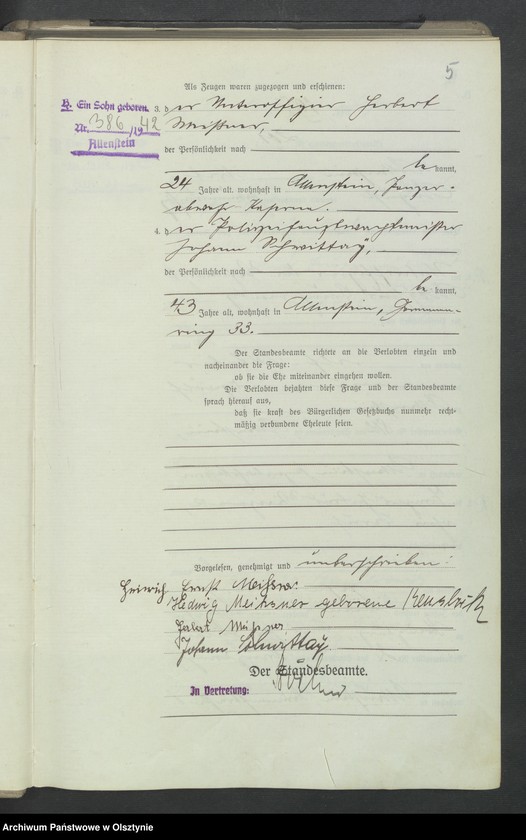 5
Als Zeugen waren zugezogen und erschienen:
H. Ein Sohn geboren.
Nr. 386/1942
Allenstein
3. der Unteroffizier Herbert
Meißner,
der Persönlichkeit nach
be kannt,
24 Jahre alt, wohnhaft in Allenstein, Panzer-
abwehr Kaserne.
4. der
Johann
der Persönlichkeit nach
be kannt,
43 Jahre alt, wohnhaft in Allenstein,
ring 33.
Der Standesbeamte richtete an die Verlobten einzeln und
nacheinander die Frage:
ob sie die Ehe miteinander eingehen wollen.
Die Verlobten bejahten diese Frage und der Standesbeamte
sprach hierauf aus,
daß sie kraft des Bürgerlichen Gesetzbuchs nunmehr recht-
mäßig verbundene Eheleute seien.
Vorgelesen, genehmigt und unterschrieben:
Heinrich Ernst
Hedwig Meissner geborene
Johann
Der Standesbeamte.
In Vertretung:
Archiwum Państwowe w Olsztynie